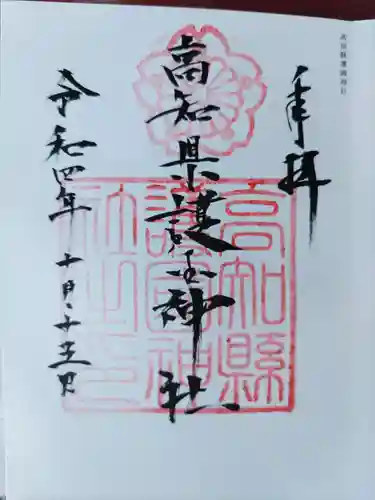 高知縣護國神社
奉拝
高知県護国神社
令和四年 十月二十五日
高知縣護國神社之印